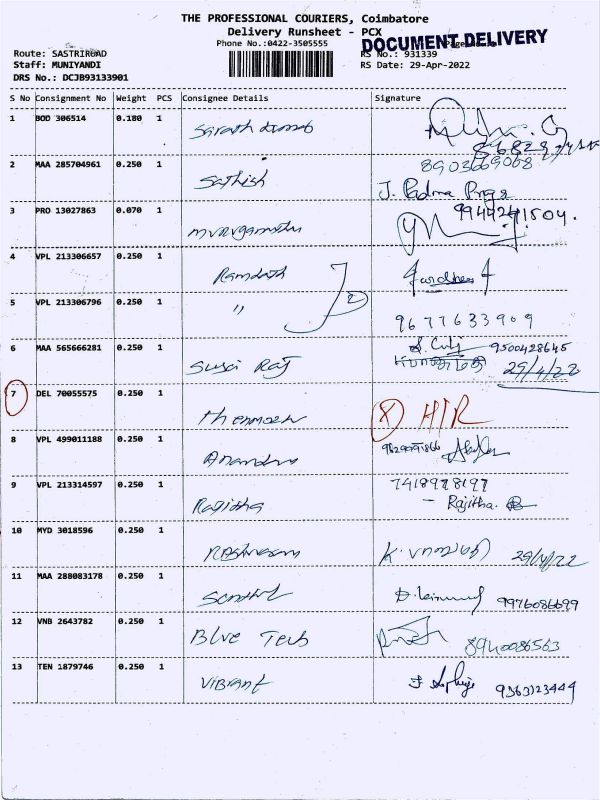 THE PROFESSIONAL COURIERS, Coimbatore
Delivery Runsheet - PCX
Phone No.:0422-3505555
DOCUMENT DELIVERY
Route: SASTRIROAD
RS No.: 931339
Staff: MUNIYANDI
RS Date: 29-Apr-2022
DRS No.: DCJB93133901
S No Consignment No Weight PCS Consignee Details Signature
1 BOD 306514 0.180 1
2 MAA 285704961 0.250 1 Sathish 8903669068
J. Padma Priya
3 PRO 13027863 0.070 1 9944241504.
4 VPL 213306657 0.250 1 Ramdath
5 VPL 213306796 0.250 1 " 2 9677633909
6 MAA 565666281 0.250 1 Susi Raj 9500428645
29/4/22
7 DEL 70055575 0.250 1
8 VPL 499011188 0.250 1
9 VPL 213314597 0.250 1 Rajitha 7418978197
- Rajitha.
10 MYD 3018596 0.250 1 29/4/22
11 MAA 288083178 0.250 1 Senthil 9976086699
12 VNB 2643782 0.250 1 Blue Tech 8940086563
13 TEN 1879746 0.250 1 Vibrant 9363123444